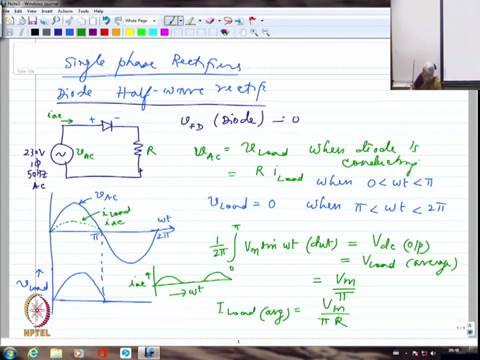 Note1 - Windows Journal
File Edit View Insert Actions Tools Help
Single phase Rectifiers
Diode Half-wave rectifi
i_ac + -
v_fD (Diode) = 0
230V
1φ
50Hz
AC
v_AC
R
v_AC = v_Load when diode is conducting
= R i_Load when 0 < ωt < π
v_Load = 0 when π < ωt < 2π
v_AC
i_load
i_ac
π
2π
ωt
1/2π ∫_0^π V_m sin ωt (dωt) = V_dc (o/p)
= V_Load (average)
= V_m/π
I_Load (avg) = V_m/πR
v_Load
i_ac
→ ωt
NPTEL